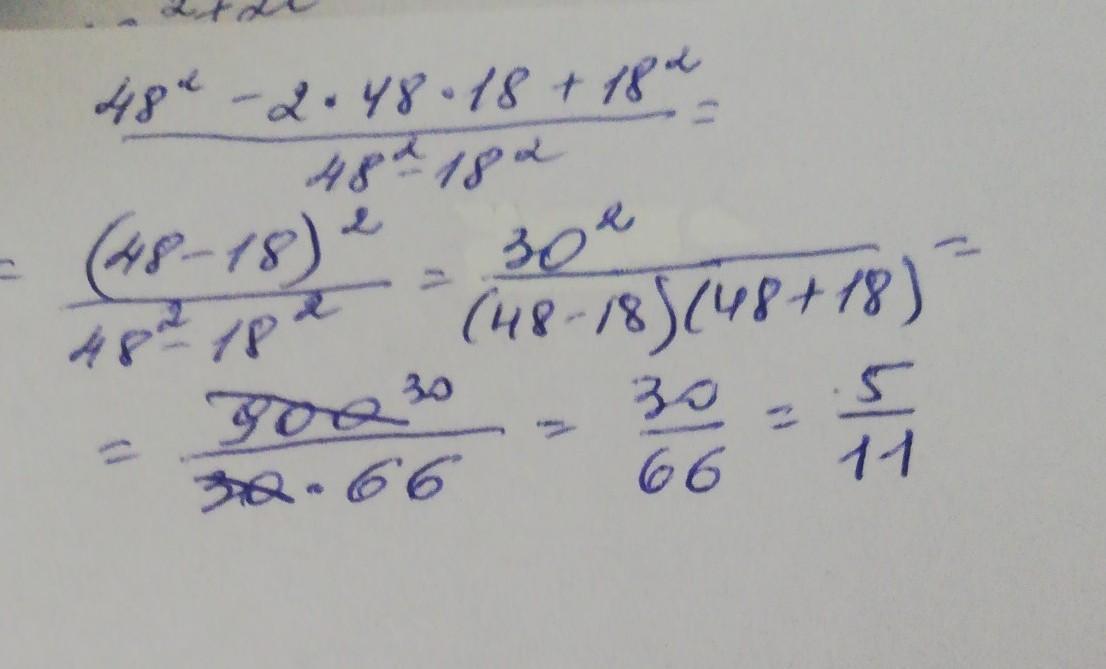 48² - 2 · 48 · 18 + 18² =
48² - 18²
= (48 - 18)² = 30² =
48² - 18² (48 - 18)(48 + 18)
= 900 30 = 30 = 5
30 · 66 66 11